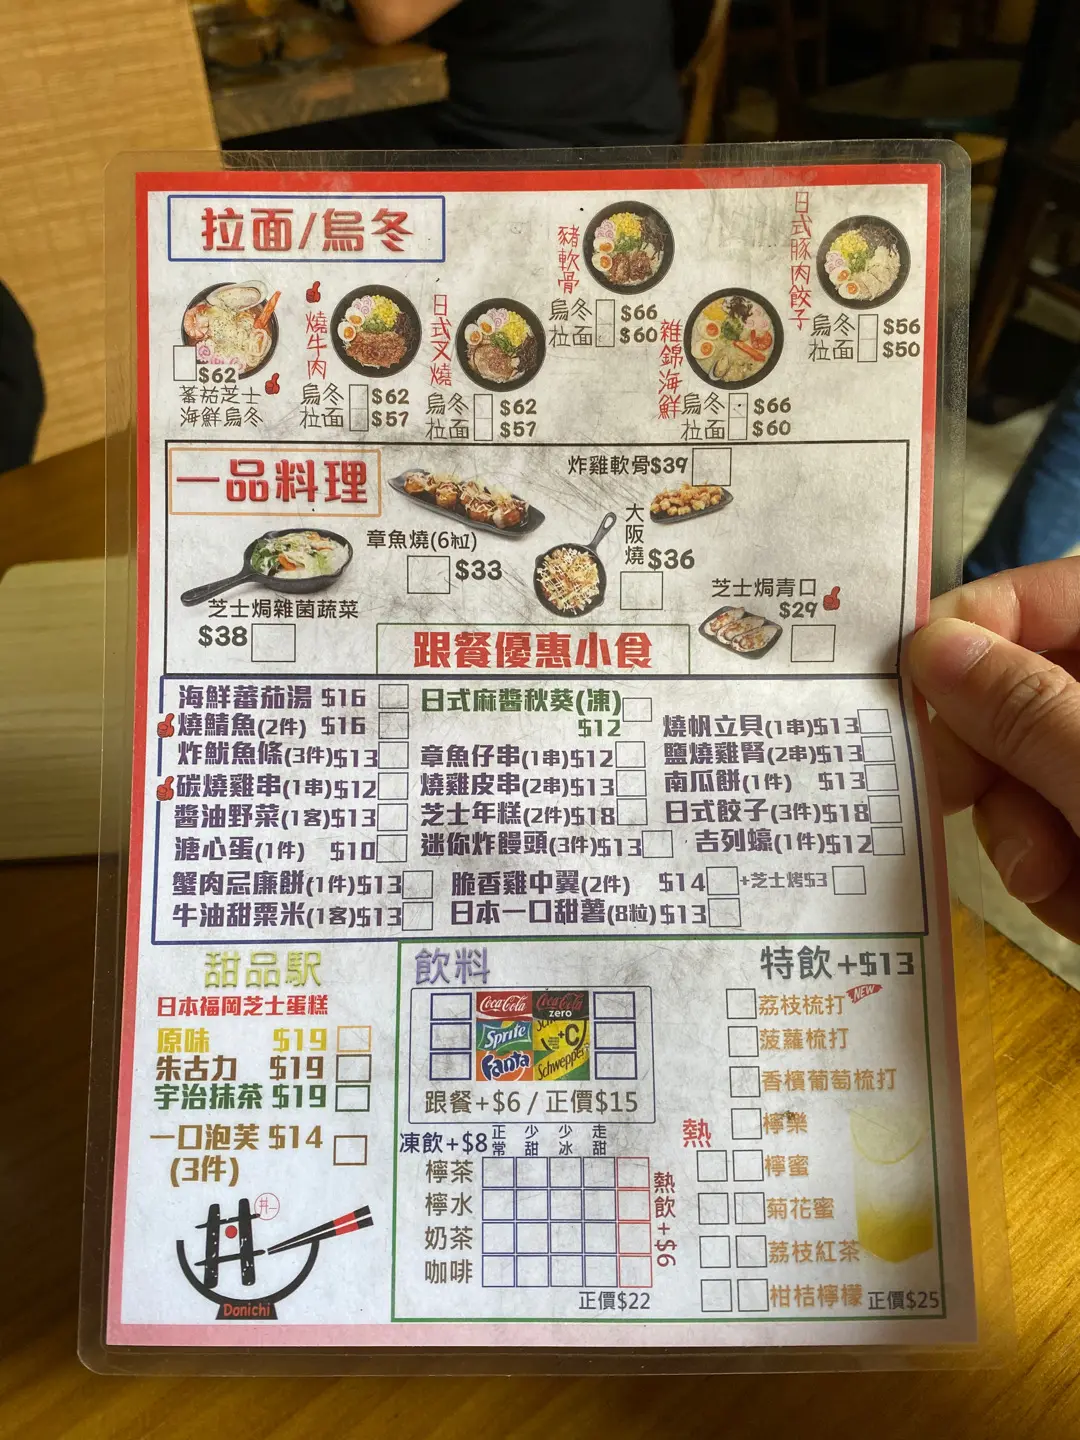 拉面/烏冬
$62
蕃茄芝士
海鮮烏冬
燒牛肉
烏冬 $62
拉面 $57
日式叉燒
烏冬 $62
拉面 $57
豬軟骨
烏冬 $66
拉面 $60
雜錦海鮮
烏冬 $66
拉面 $60
日式豚肉餃子
烏冬 $56
拉面 $50
一品料理
炸雞軟骨$39
章魚燒(6粒)
$33
大阪燒 $36
芝士焗青口
$29
芝士焗雜菌蔬菜
$38
跟餐優惠小食
海鮮蕃茄湯 $16
燒鯖魚(2件) $16
炸魷魚條(3件)$13
碳燒雞串(1串)$12
醬油野菜(1客)$13
溏心蛋(1件) $10
蟹肉忌廉餅(1件)$13
牛油甜粟米(1客)$13
日式麻醬秋葵(凍)
$12
章魚仔串(1串)$12
燒雞皮串(2串)$13
芝士年糕(2件)$18
迷你炸饅頭(3件)$13
脆香雞中翼(2件) $14 +芝士烤$3
日本一口甜薯(8粒)$13
燒帆立貝(1串)$13
鹽燒雞腎(2串)$13
南瓜餅(1件) $13
日式餃子(3件)$18
吉列蠔(1件)$12
甜品駅
日本福岡芝士蛋糕
原味 $19
朱古力 $19
宇治抹茶 $19
一口泡芙 $14
(3件)
丼一
丼
Donichi
飲料
Coca-Cola
Coca-Cola zero
Sprite
Schweppes +C
Fanta
Schweppes
跟餐+$6 / 正價$15
凍飲+$8 正常 少甜 少冰 走甜
檸茶
檸水
奶茶
咖啡
熱飲+$6
正價$22
特飲+$13
荔枝梳打 NEW
菠蘿梳打
香檳葡萄梳打
熱
檸樂
檸蜜
菊花蜜
荔枝紅茶
柑桔檸檬
正價$25